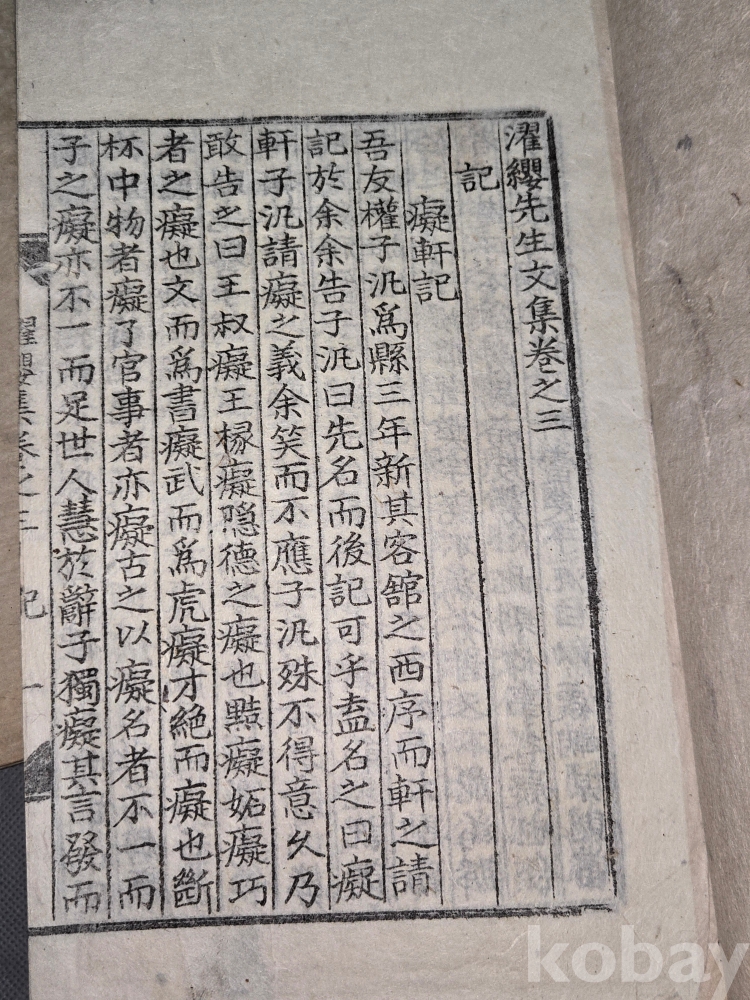 濯纓先生文集卷之三
記
癡軒記
吾友權子汎爲縣三年新其客舘之西序而軒之請
記於余余告子汎曰先名而後記可乎盍名之曰癡
軒子汎請癡之義余笑而不應子汎殊不得意久乃
敢告之曰王叔癡王掾癡隱德之癡也黠癡妬癡巧
者之癡也文而爲書癡武而爲虎癡才絶而癡也斷
杯中物者癡了官事者亦癡古之以癡名者不一而
子之癡亦不一而足世人慧於辭子獨癡其言發而
濯纓集卷之三 記 一
kobay